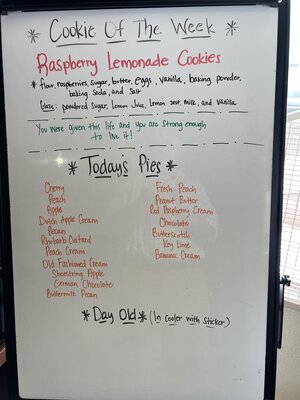 * Cookie Of The Week *
Raspberry Lemonade Cookies
* flour, raspberries, sugar, butter, eggs, vanilla, baking powder,
baking soda, and salt
Glaze: powdered sugar, lemon juice, lemon zest, milk, and vanilla
You were given this life and you are strong enough
to live it!
* Today's Pies *
Cherry
Peach
Apple
Dutch Apple Cream
Pecan
Rhubarb Custard
Peach Cream
Old Fashioned Cream
Shoestring Apple
German Chocolate
Buttermilk Pecan
Fresh Peach
Peanut Butter
Red Raspberry Cream
Chocolate
Butterscotch
Key Lime
Banana Cream
* Day Old * (In Cooler with Sticker)